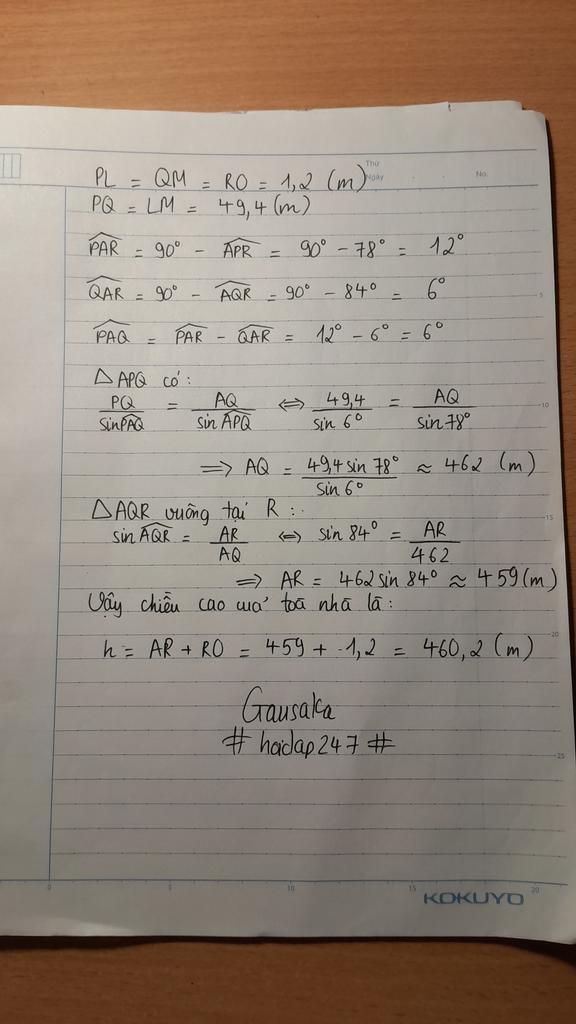 Thứ
Ngày
No.
PL = QM = RO = 1,2 (m)
PQ = LM = 49,4 (m)
PAR = 90° - APR = 90° - 78° = 12°
QAR = 90° - AQR = 90° - 84° = 6°
PAQ = PAR - QAR = 12° - 6° = 6°
△APQ có:
PQ/sinPAQ = AQ/sin APQ ⇔ 49,4/sin 6° = AQ/sin 78°
⇒ AQ = 49,4 sin 78°/sin 6° ≈ 462 (m)
△AQR vuông tại R :
sin AQR = AR/AQ ⇔ sin 84° = AR/462
⇒ AR = 462 sin 84° ≈ 459 (m)
Vậy chiều cao của toà nhà là:
h = AR + RO = 459 + 1,2 = 460,2 (m)
Gausaka
# hoidap247 #
5
10
15
20
25
0 5 10 15 20
KOKUYO